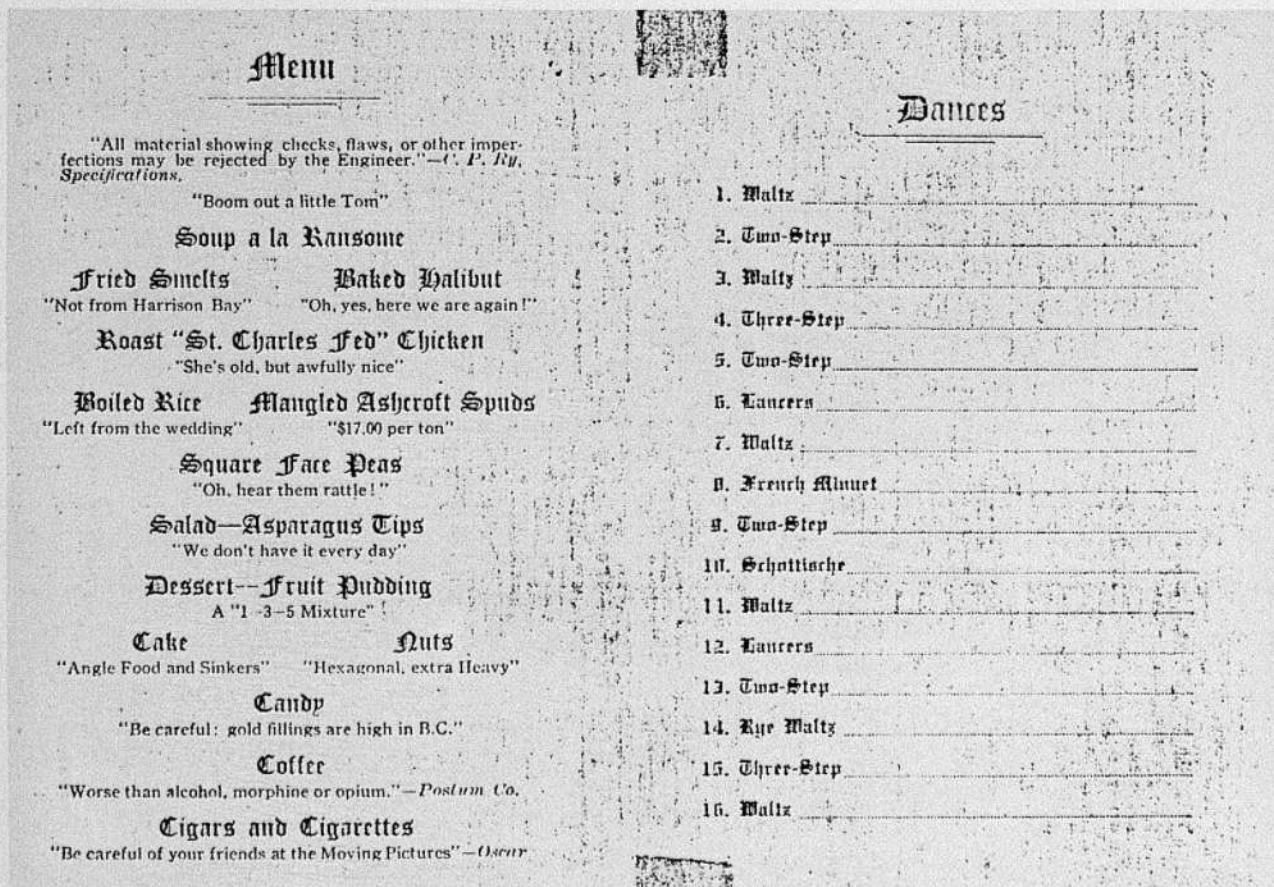 Menu
"All material showing checks, flaws, or other imper-
fections may be rejected by the Engineer."—C. P. Ry.
Specifications.
"Boom out a little Tom"
Soup a la Ransome
Fried Smelts Baked Halibut
"Not from Harrison Bay" "Oh, yes, here we are again!"
Roast "St. Charles Fed" Chicken
"She's old, but awfully nice"
Boiled Rice Mangled Ashcroft Spuds
"Left from the wedding" "$17.00 per ton"
Square Face Peas
"Oh, hear them rattle!"
Salad—Asparagus Tips
"We don't have it every day"
Dessert--Fruit Pudding
A "1-3-5 Mixture"
Cake Nuts
"Angle Food and Sinkers" "Hexagonal, extra Heavy"
Candy
"Be careful: gold fillings are high in B.C."
Coffee
"Worse than alcohol, morphine or opium."—Postum Co.
Cigars and Cigarettes
"Be careful of your friends at the Moving Pictures"—Oscar
Dances
1. Waltz
2. Two-Step
3. Waltz
4. Three-Step
5. Two-Step
6. Lancers
7. Waltz
8. French Minuet
9. Two-Step
10. Schottische
11. Waltz
12. Lancers
13. Two-Step
14. Rye Waltz
15. Three-Step
16. Waltz